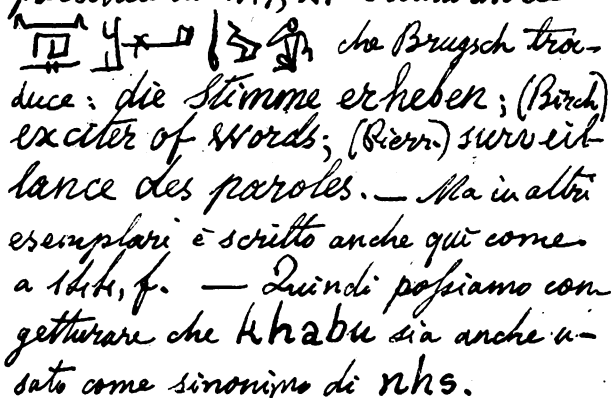 che Brugsch tra-
duce: die Stimme erheben; (Birch)
exciter of words; (Pierr.) surveil-
lance des paroles. — Ma in altri
esemplari è scritto anche qui come
a f. — Quindi possiamo con-
getturare che khabu sia anche u-
sato come sinonimo di nhs.